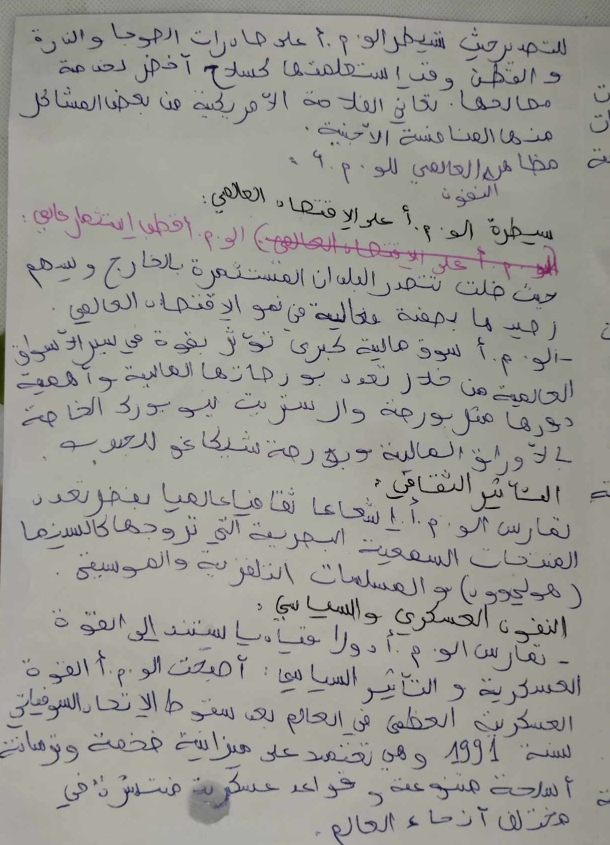 للتصدير حيث تسيطر الو.م.أ على صادرات الصوجا والذرة
و القطن وقد استعملتها كسلاح آخضر لخدمة
مصالحها. تعاني الفلاحة الآمريكية من بعض المشاكل
منها المنافسة الآجنبية.
مظاهر النفوذ العالمي للو.م.أ:
سيطرة الو.م.أ على الإقتصاد العالمي:
(الو.م.أ على الإقتصاد العالمي:) الو.م.أ قطب إستثمار عالمي:
حيث ظلت تتصدر البلدان المستثمرة بالخارج ويسهم
رصيدها بصفة فعالية في نمو الإقتصاد العالمي.
-الو.م.أ سوق مالية كبرى تؤثر بقوة في سير الآسواق
العالمية من خلال تعدد بورصاتها المالية و آهمية
دورها مثل بورصة وال ستريت نيويورك الخاصة
بالآوراق المالية وبورصة شيكاغو للحبوب.
التآثير الثقافي:
تمارس الو.م.أ إشعاعا ثقافيا عالميا بفضل تعدد
المنتجات السمعية البصرية التي تروجها كالسينما
(هوليوود) و المسلسلات التلفزية والموسيقى.
النفوذ العسكري والسياسي:
- تمارس الو.م.أ دورا قياديا يستند إلى القوة
العسكرية و التآثير السياسي: آصبحت الو.م.أ القوة
العسكرية العظمى في العالم بعد سقوط الإتحاد السوفياتي
لسنة 1991 وهي تعتمد على ميزانية ضخمة وترسانة
آسلحة متنوعة و قواعد عسكرية منتشرة في
مختلف آنحاء العالم.